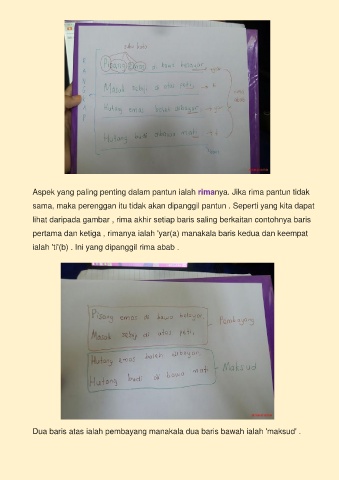 suku kata
Pisang emas di bawa belayar
Masak sebiji di atas peti
Hutang emas boleh dibayar
Hutang budi dibawa mati
Aspek yang paling penting dalam pantun ialah rimanya. Jika rima pantun tidak
sama, maka perenggan itu tidak akan dipanggil pantun . Seperti yang kita dapat
lihat daripada gambar , rima akhir setiap baris saling berkaitan contohnya baris
pertama dan ketiga , rimanya ialah 'yar(a) manakala baris kedua dan keempat
ialah 'ti'(b) . Ini yang dipanggil rima abab .
Pisang emas di bawa belayar
Masak sebiji di atas peti
Pembayang
Hutang emas boleh dibayar
Hutang budi di bawa mati
Maksud
Dua baris atas ialah pembayang manakala dua baris bawah ialah 'maksud' .